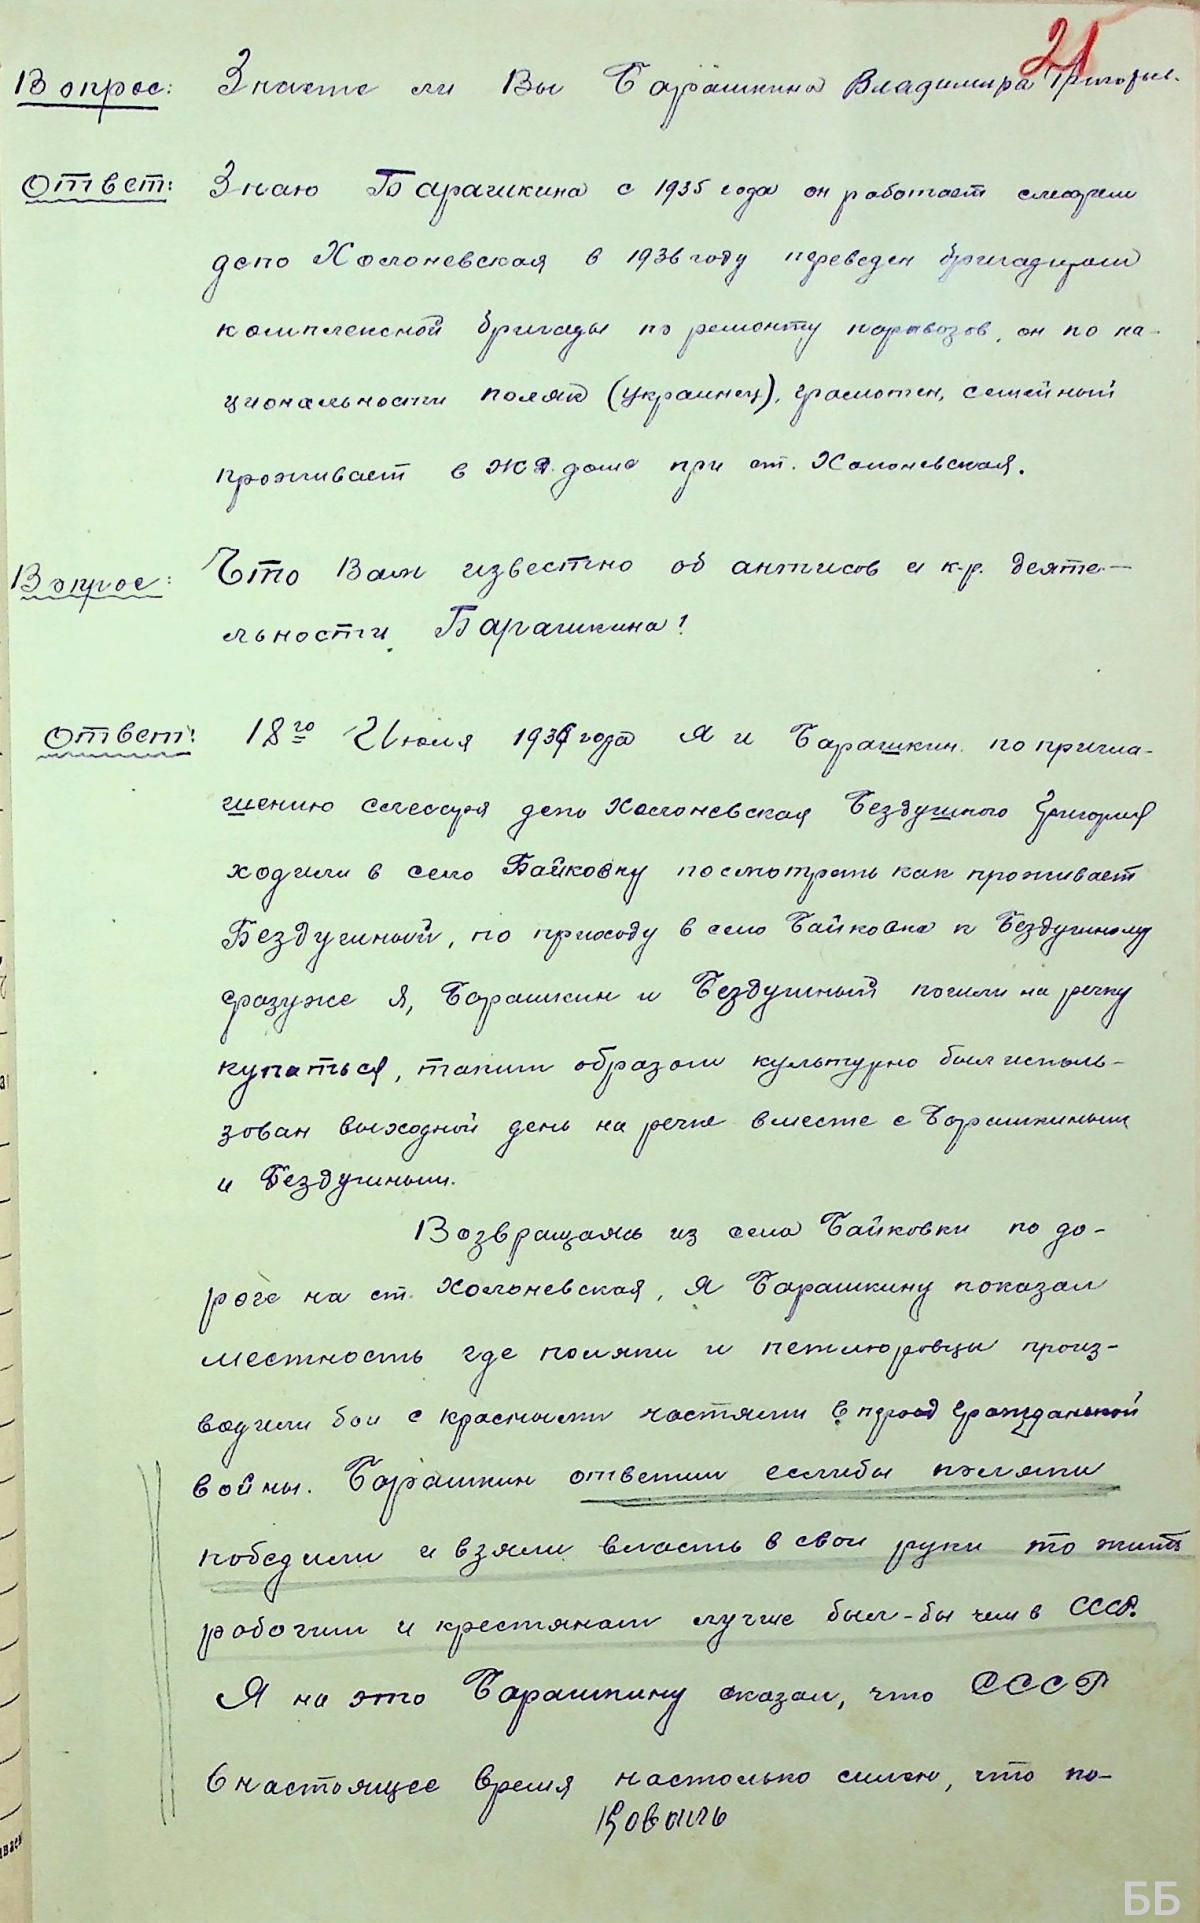 21
Вопрос: Знаете ли Вы Барашкина Владимира Григорьев.
Ответ: Знаю Барашкина с 1935 года он работает слесарем
депо Холоневская в 1936 году переведен бригадиром
комплексной бригады по ремонту паровозов, он по на-
циональности поляк (украинец), грамотен, семейный
проживает в ЖД. доме при ст. Холоневская.
Вопрос: Что Вам известно об антисов и к.р. деяте-
льности Барашкина?
Ответ: 18го Июля года Я и Барашкин по пригла-
шению слесаря депо Холоневская Бездушного Григория
ходили в село Байковку посмотреть как проживает
Бездушный, по приходу в село Байковка к Бездушному
сразуже Я, Барашкин и Бездушный пошли на речку
купаться, таким образом культурно был исполь-
зован выходной день на речке вместе с Барашкиным
и Бездушным.
Возвращаясь из села Байковки по до-
роге на ст. Холоневская, Я Барашкину показал
местность где поляки и петлюровцы произ-
водили бои с красными частями в период Гражданской
войны. Барашкин ответил еслибы поляки
победили и взяли власть в свои руки то жить
рабочим и крестянам лучше был-бы чем в СССР.
Я на это Барашкину сказал, что СССР
в настоящее время настолько силен, что по-
Коваль
ББ